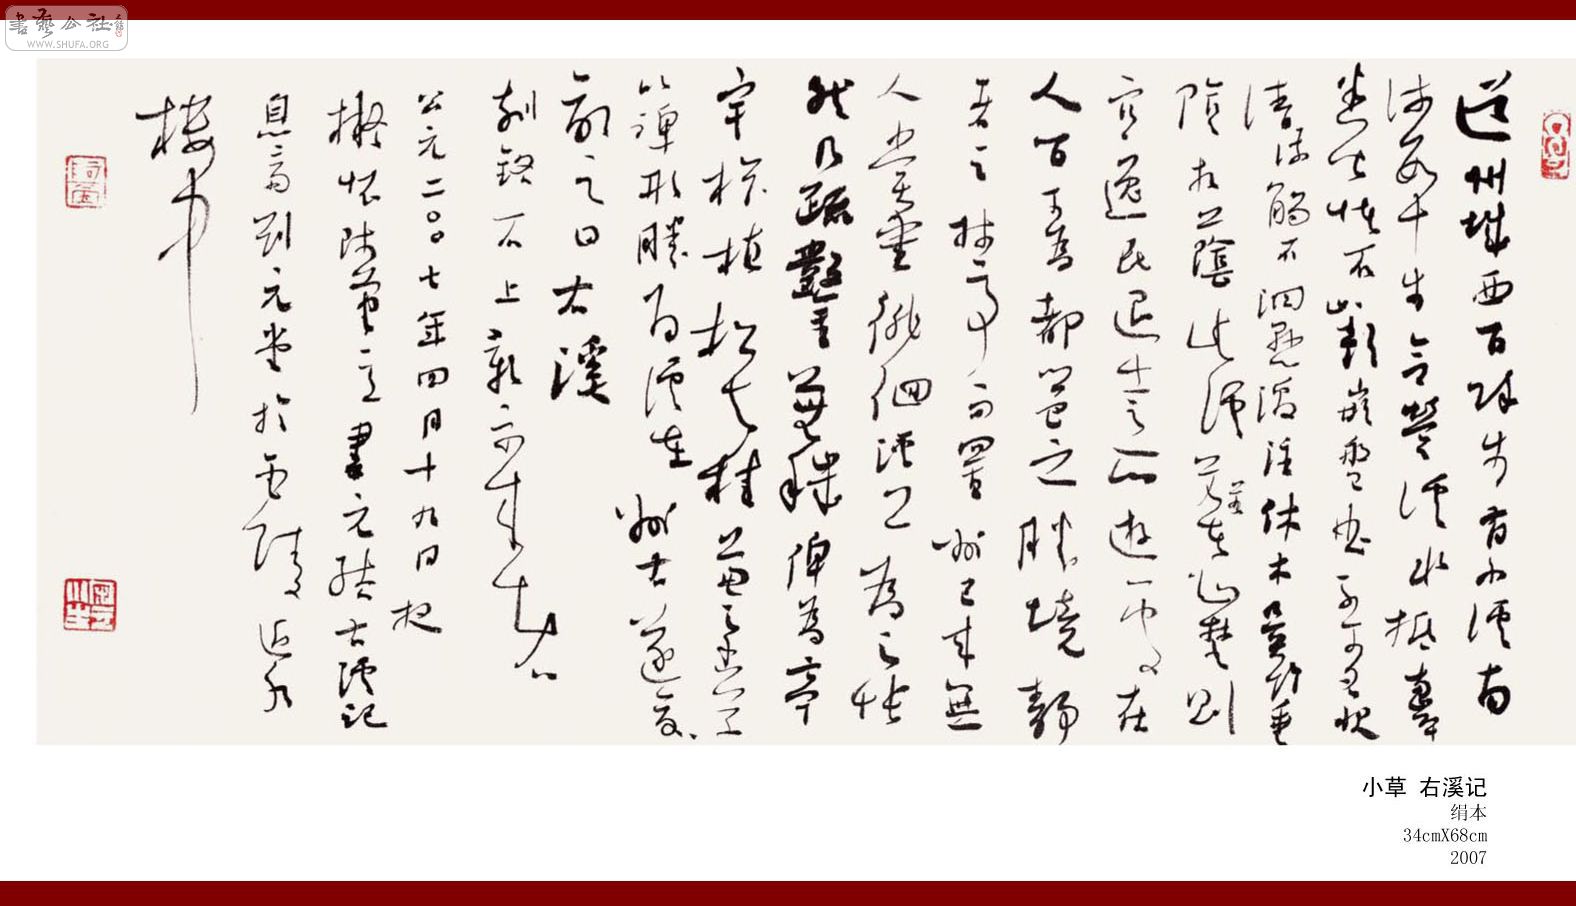 書藝公社
WWW.SHUFA.ORG
道州城西百餘步有小溪南
流數十步合營溪水抵兩岸
悉皆怪石欹嵌盤屈不可名狀
清流觸石洄懸激注佳木異竹垂
陰相蔭此溪若在山野則
宜逸民退士之所遊處在
人 為都邑之勝境靜
者之林亭而置州已來無
人賞愛徘徊溪上為之悵
然乃疏鑿蕪穢俾為亭
宇 植松與桂兼之香草
以裨形勝為溪在州右遂命
之曰右溪
刻銘石上彰示來者
公元二〇〇七年四月十九日
擬懷素筆意書元結右溪記
息 元堂於零陵近水
樓中
小草 右溪记
绢本
34cmX68cm
2007